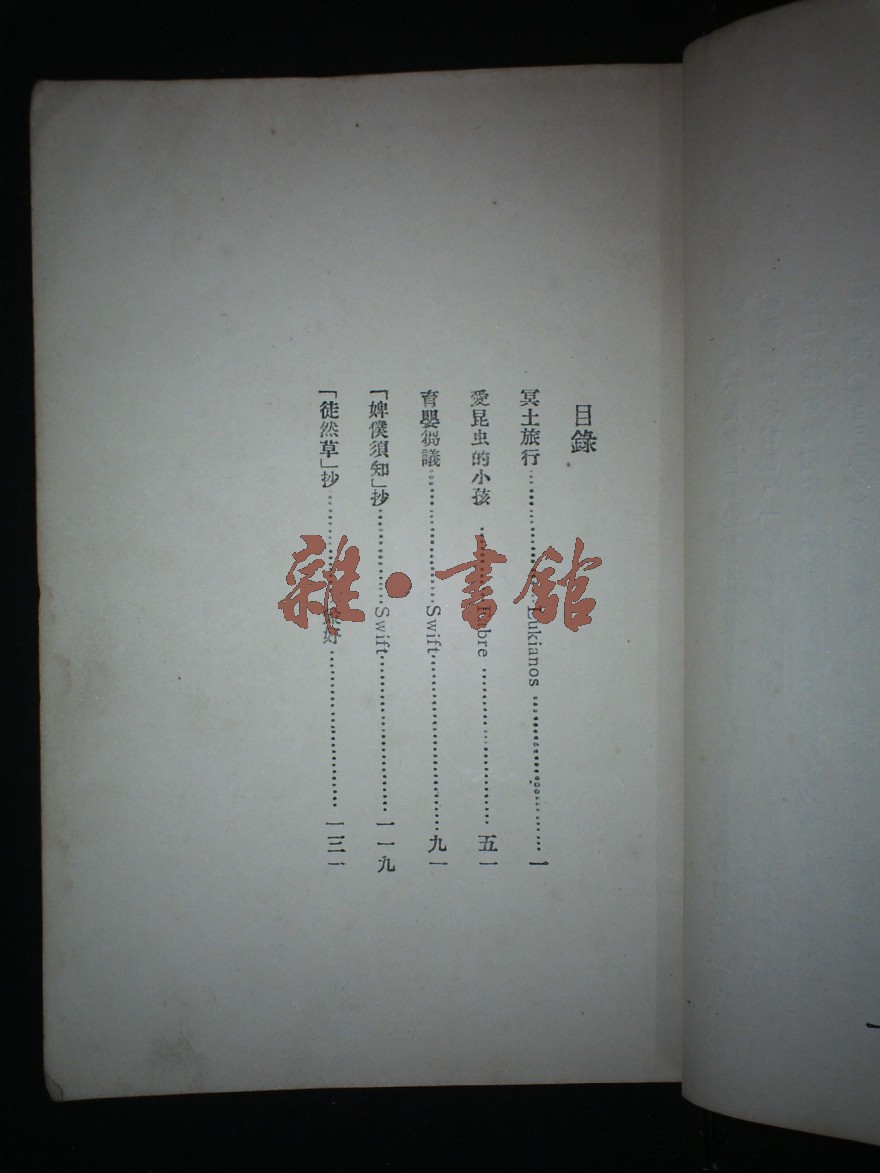 目錄
冥土旅行……………Lukianos……………一
愛昆虫的小孩……………Fabre……………五一
育嬰芻議……………Swift……………九一
「婢僕須知」抄……………Swift……………一一九
「徒然草」抄……………兼好……………一三一
雜·書館